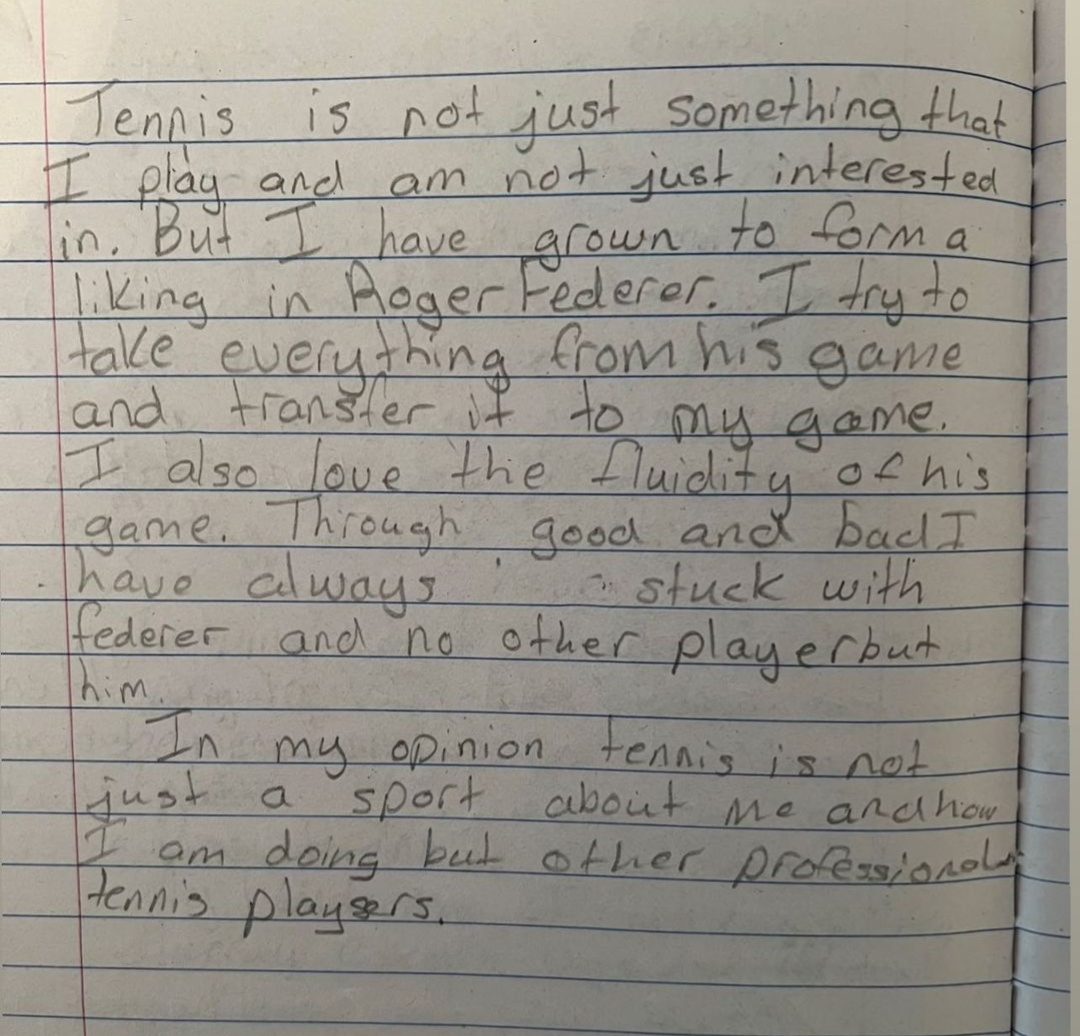 Tennis is not just something that
I play and am not just interested
in. But I have grown to form a
liking in Roger Federer. I try to
take everything from his game
and transfer it to my game.
I also love the fluidity of his
game. Through good and bad I
have always stuck with
federer and no other player but
him.
In my opinion tennis is not
just a sport about me and how
I am doing but other professional
tennis players.